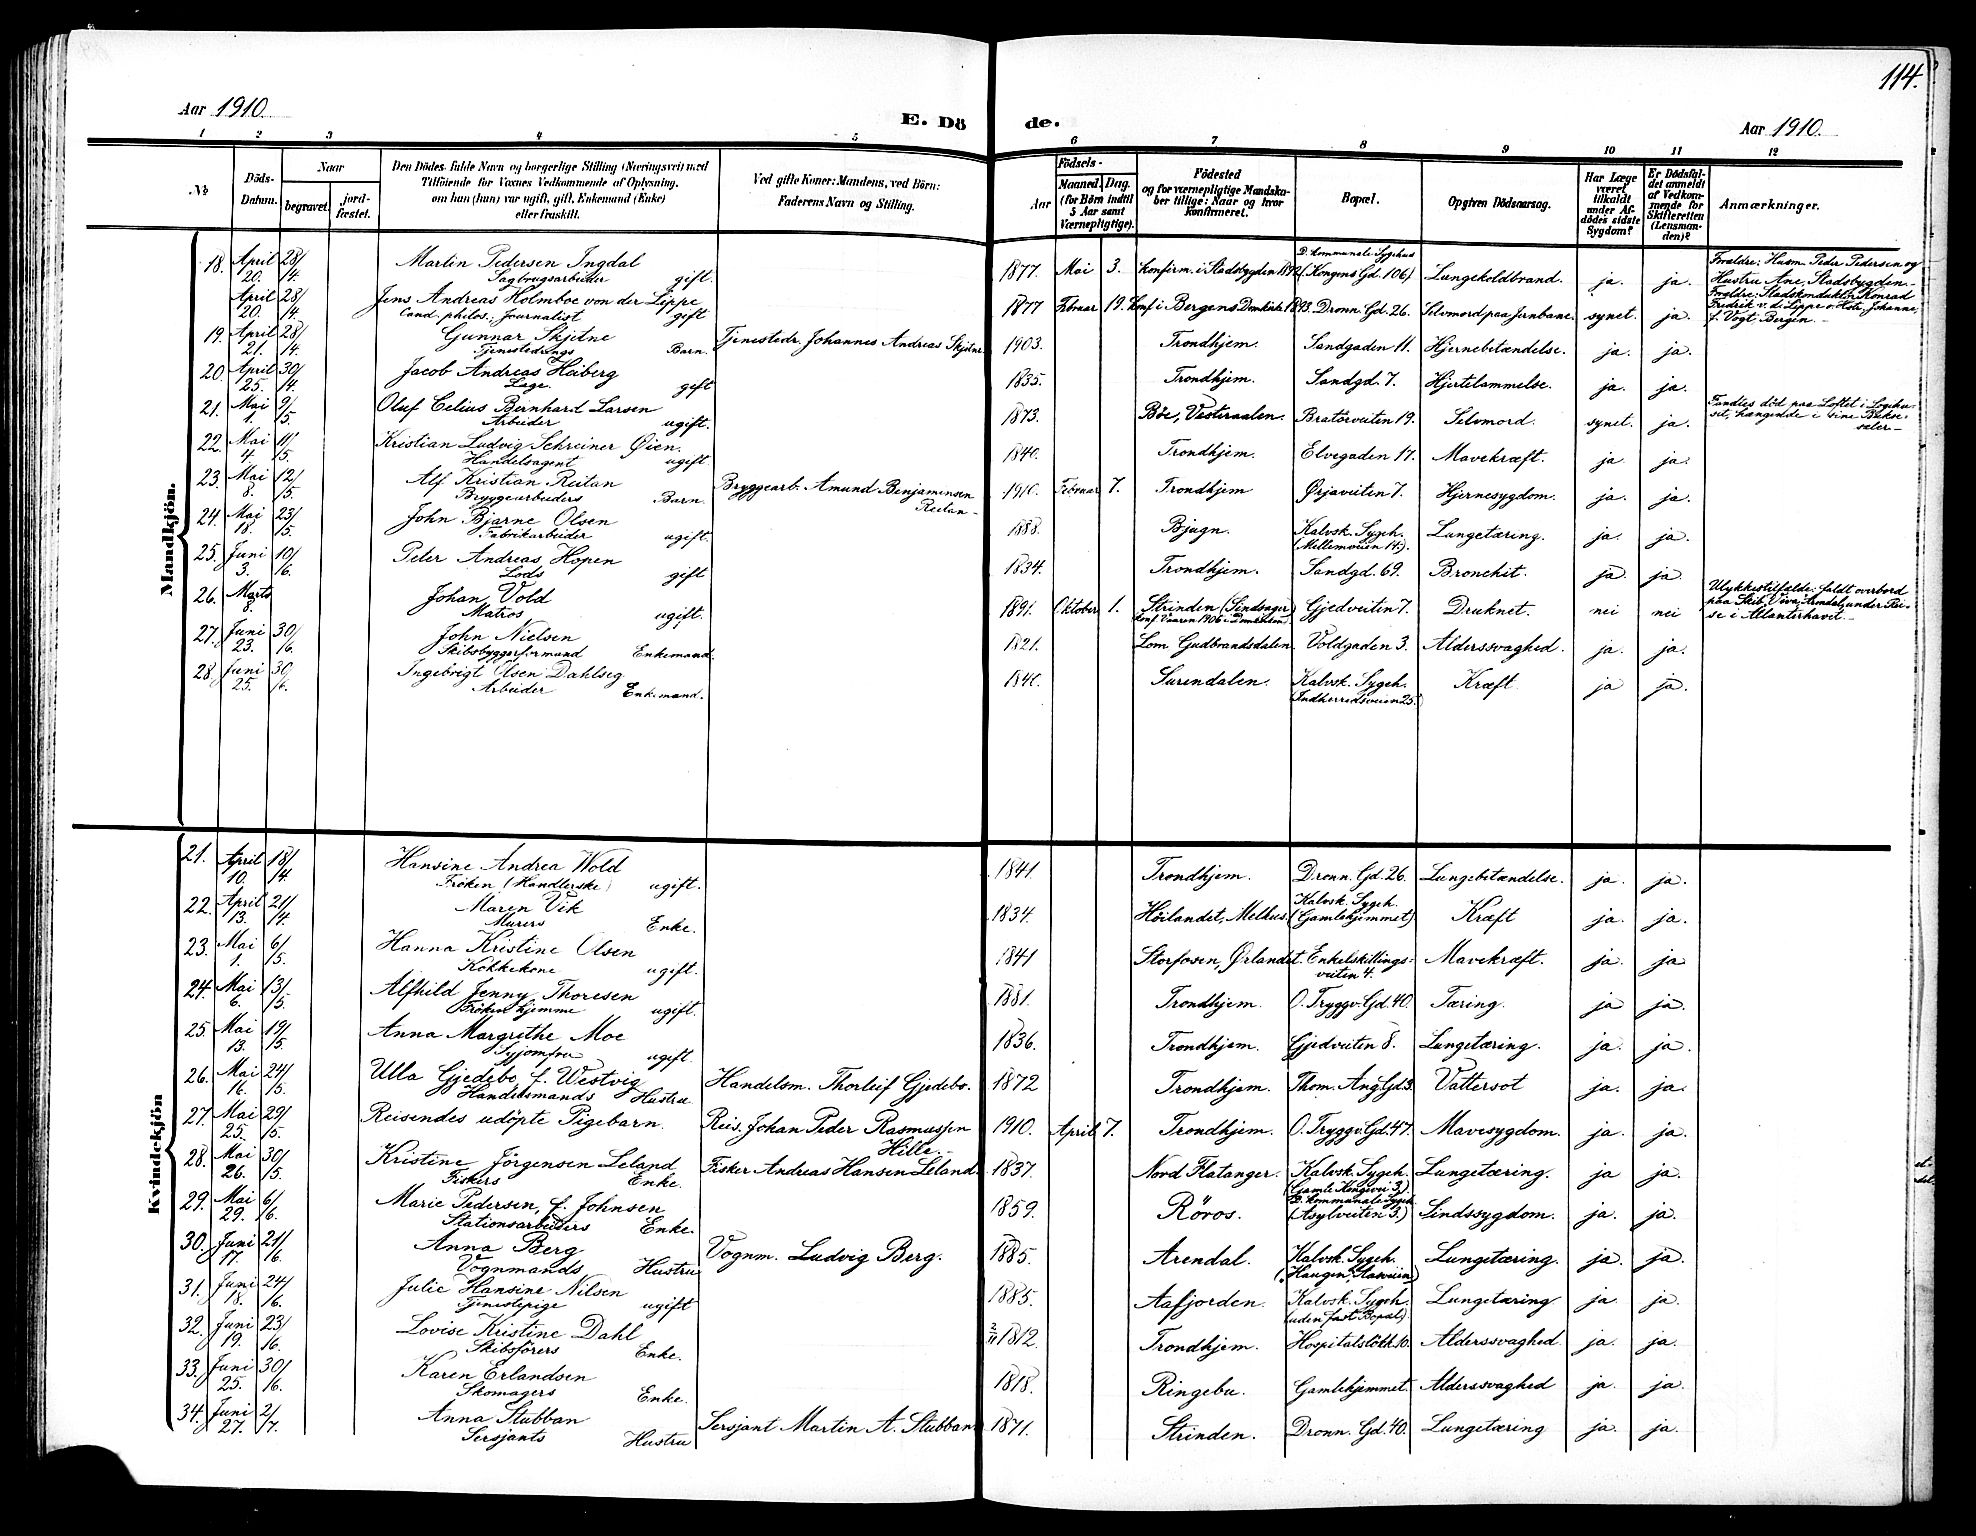 114.
Aar 1910.
E. Dö
de.
Aar 1910.
1 2 3 4 5 6 7 8 9 10 11 12
No
Döds-
Datum.
Naar
begravet.
jord-
fæstet.
Den Dödes fulde Navn og borgerlige Stilling (Næringsvei) med
Tilföiende for Voxnes Vedkommende af Oplysning,
om han (hun) var ugift, gift, Enkemand (Enke)
eller fraskilt.
Ved gifte Koner: Mandens, ved Börn:
Faderens Navn og Stilling.
Födsels-
Aar
Maaned. Dag.
(for Börn indtil
5 Aar samt
Værnepligtige).
Födested
og for værnepligtige Mandska-
ber tillige: Naar og hvor
konfirmeret.
Bopæl.
Opgiven Dödsaarsag.
Har Læge
været
tilkaldt
under Af-
dödes sidste
Sygdom?
Er Dödsfal-
det anmeldt
af Vedkom-
mende for
Skifteretten
(Lensman-
den)?
Anmærkninger.
Mandkjön.
18. April 20. 28/4. Martin Pedersen Ingdal
Sagbrugsarbeider gift.
1877. Mai 3. konfirm. i Stadsbygden 1892 D. kommunale Sygehus (Kongens Gd. 106) Lungekoldbrand. ja. ja. Foraldre: Husm. Peder Pedersen og
Hustru Ane, Stadsbygden.
April 20. 28/4. Jens Andreas Holmboe von der Lippe
Cand. philos.; Journalist gift
1877 Februar 19. konf. i Bergens Domkirk 1893. Dronn. Gd. 26. Selvmord paa Jernbane. synet. ja. Foraldre: Stadskonduktör Konrad
Fredrik v. d. Lippe o. Hstr. Johanne,
f. Vogt Bergen.
19. April 21. 28/4. Gunnar Skjetne
Tjenestedrengs Barn. Tjenestedr. Johannes Andreas Skjetne
1903. Trondhjem. Sandgaden 11. Hjernebetændelse. ja. ja.
20. April 25. 30/4. Jacob Andreas Heiberg
Læge. gift
1835. Trondhjem. Sandgd. 7. Hjertelammelse. ja. ja.
21. Mai 1. 9/5. Oluf Celius Bernhard Larsen
Arbeider ugift.
1873. Böe, Vesteraalen. Bratörveiten 19. Selvmord. synet. ja. Fandtes död paa Loftet i Logihu-
set, hængende i sine Bukse-
seler
22. Mai 4. 11/5. Kristian Ludvig Schreiner Øien.
Handelsagent ugift
1840. Trondhjem. Elvegaden 17. Mavekræft. ja. ja.
23. Mai 8. 12/5. Alf Kristian Reitan
Bryggearbeiders Barn. Bryggearb. Amund Benjaminsen
Reitan
1910. Februar 7. Trondhjem Ørjaveiten 7. Hjernesygdom. ja. ja.
24. Mai 18. 23/5. John Bjarne Olsen
Fabrikarbeider ugift.
1888. Bjugn. Kalvsk. Sygeh.
(Mellemveien 14.) Lungetæring. ja. ja.
25. Juni 3. 10/6. Peter Andreas Hopen
Lods gift
1834. Trondhjem. Sandgd. 69. Bronchit. ja. ja.
26. Marts 8. Johan Vold
Matros ugift.
1891. Oktober 1. Strinden
konf. Vaaren 1906 i Domkirken Gjedveiten 7. Druknet. nei nei Ulykkestilfælde: faldt overbord
paa Skib "Viva", Arendal, under Rei-
se i Atlanterhavet.
27. Juni 23. 30/6. John Nielsen
Skibsbyggerformand Enkemand.
1821. Lom Gudbrandsdalen Voldgaden 3. Alderssvaghed. ja. ja.
28. Juni 25. 30/6. Ingebrigt Olsen Dahlseg
Arbeider Enkemand.
1840. Surendalen. Kalvsk. Sygeh.
(Indherredsveien 25.) Kræft. ja ja.
Kvindekjön
21. April 10. 18/4 Hansine Andrea Wold
Fröken (Handlerske) ugift.
1841. Trondhjem. Dronn. Gd. 26. Lungebetændelse. ja. ja.
22. April 13. 21/4. Maren Vik
Murers Enke.
1834. Höilandet, Melhus. Kalvsk. Sygeh.
(Gamlehjemmet) Kræft ja. ja.
23. Mai 1. 6/5. Hanna Kristine Olsen
Kokkekone ugift.
1841 Storfosen, Ørlandet. Enkelskillings-
veiten 4. Mavekræft. ja. ja
24. Mai 6. 13/5. Alfhild Jenny Thoresen
Fröken hjemme ugift.
1881. Trondhjem. O. Tryggv. Gd. 40. Tæring. ja ja.
25. Mai 13. 19/5. Anna Margrethe Moe
Syjomfru ugift.
1836. Trondhjem. Gjedveiten 8. Lungetæring. ja. ja.
26. Mai 16. 24/5. Ulla Gjedebo, f. Westvig
Handelsmands Hustru Handelsm. Thorleif Gjedebo.
1872 Trondhjem. Thom. Ang. Gd. 3. Vattersot ja. ja.
27. Mai 25. 29/5. Reisendes udöpte Pigebarn. Reis. Johan Peder Rasmussen
Hille.
1910. April 7. Trondhjem. O. Tryggv. Gd. 47. Mavesygdom. ja. ja.
28. Mai 26. 30/5. Kristine Jörgensen Leland
Fiskers Enke. Fisker Andreas Hansen Leland
1837. Nord Flatanger. Kalvsk. Sygeh.
(Gamle Kongevei 3.) Lungetæring. ja ja.
29. Mai 29. 6/6. Marie Pedersen, f. Johnsen
Stationsarbeiders Enke.
1859. Röros. D. kommunale Sygeh.
(Asylveiten 3.) Sindssygdom. ja. ja.
30. Juni 17. 21/6. Anna Berg
Vognmands Hustru Vognm. Ludvig Berg.
1885. Arendal. Kalvsk. Sygeh. Lungetæring. ja. ja.
31. Juni 18. 24/6. Julie Hansine Nilsen
Tjenestepige ugift
1885. Aafjorden. Kalvsk. Sygeh.
(uden fast Bopæl). Lungetæring ja. ja.
32. Juni 19. 23/6. Lovise Kristine Dahl
Skibsförers Enke.
2/11 1812. Trondhjem. Hospitalslökk. 10. Alderssvaghed ja. ja.
33. Juni 25. 30/6. Karen Erlandsen
Skomagers Enke.
1818. Ringebu. Gamlehjemmet. Alderssvaghed ja. ja.
34. Juni 27. 2/7. Anna Stubban
Sersjants Hustru Sersjant Martin A. Stubban
1871. Strinden. Dronn. Gd. 40. Lungetæring ja. ja.